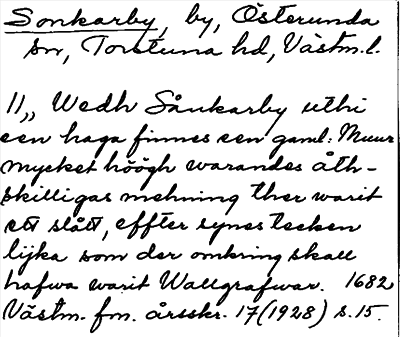 Sonkarby, by, Österunda
sn, Torstuna hd, Västm. l.
11,, Wedh Sånkarby uthi
een haga finnes een gaml: Muur
mycket höögh warandes åth-
skilligas mehning ther warit
ett slått, effter synes tecken
lijka som der omkring skall
hafwa warit Wallgrafwar. 1682
Västm. fm. årsskr. 17 (1928) s. 15.